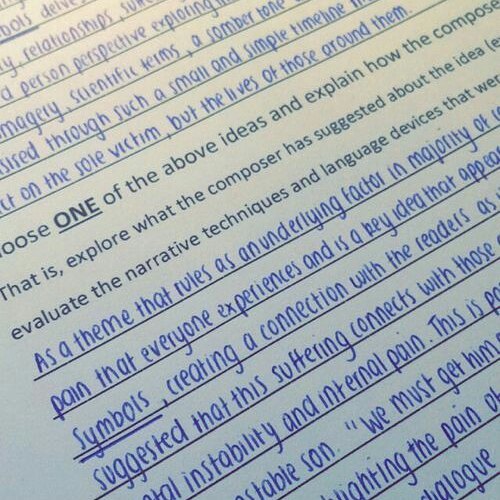 bols delves
y, relationships, suffe
d person perspective exploring
magery, scientific terms, a somber tone
sised through such a small and simple timeline
ct on the sole victim, but the lives of those around them.
oose ONE of the above ideas and explain how the compose
That is, explore what the composer has suggested about the idea
evaluate the narrative techniques and language devices that we
As a theme that rules as an underlying factor in majority of
pain that everyone experiences and is a key idea that appea
Symbols, creating a connection with the readers as
suggested that this suffering connects with those
tal instability and internal pain. This is
stable son. "We must get him
the pain of
alogue